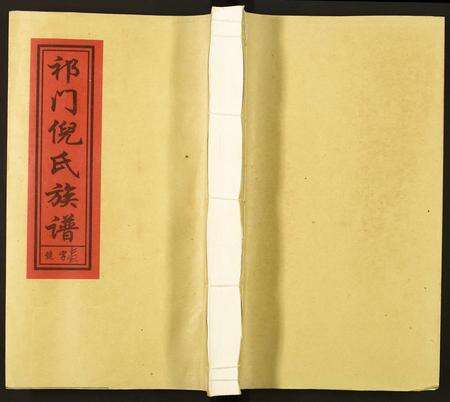 祁门倪氏族谱
字號